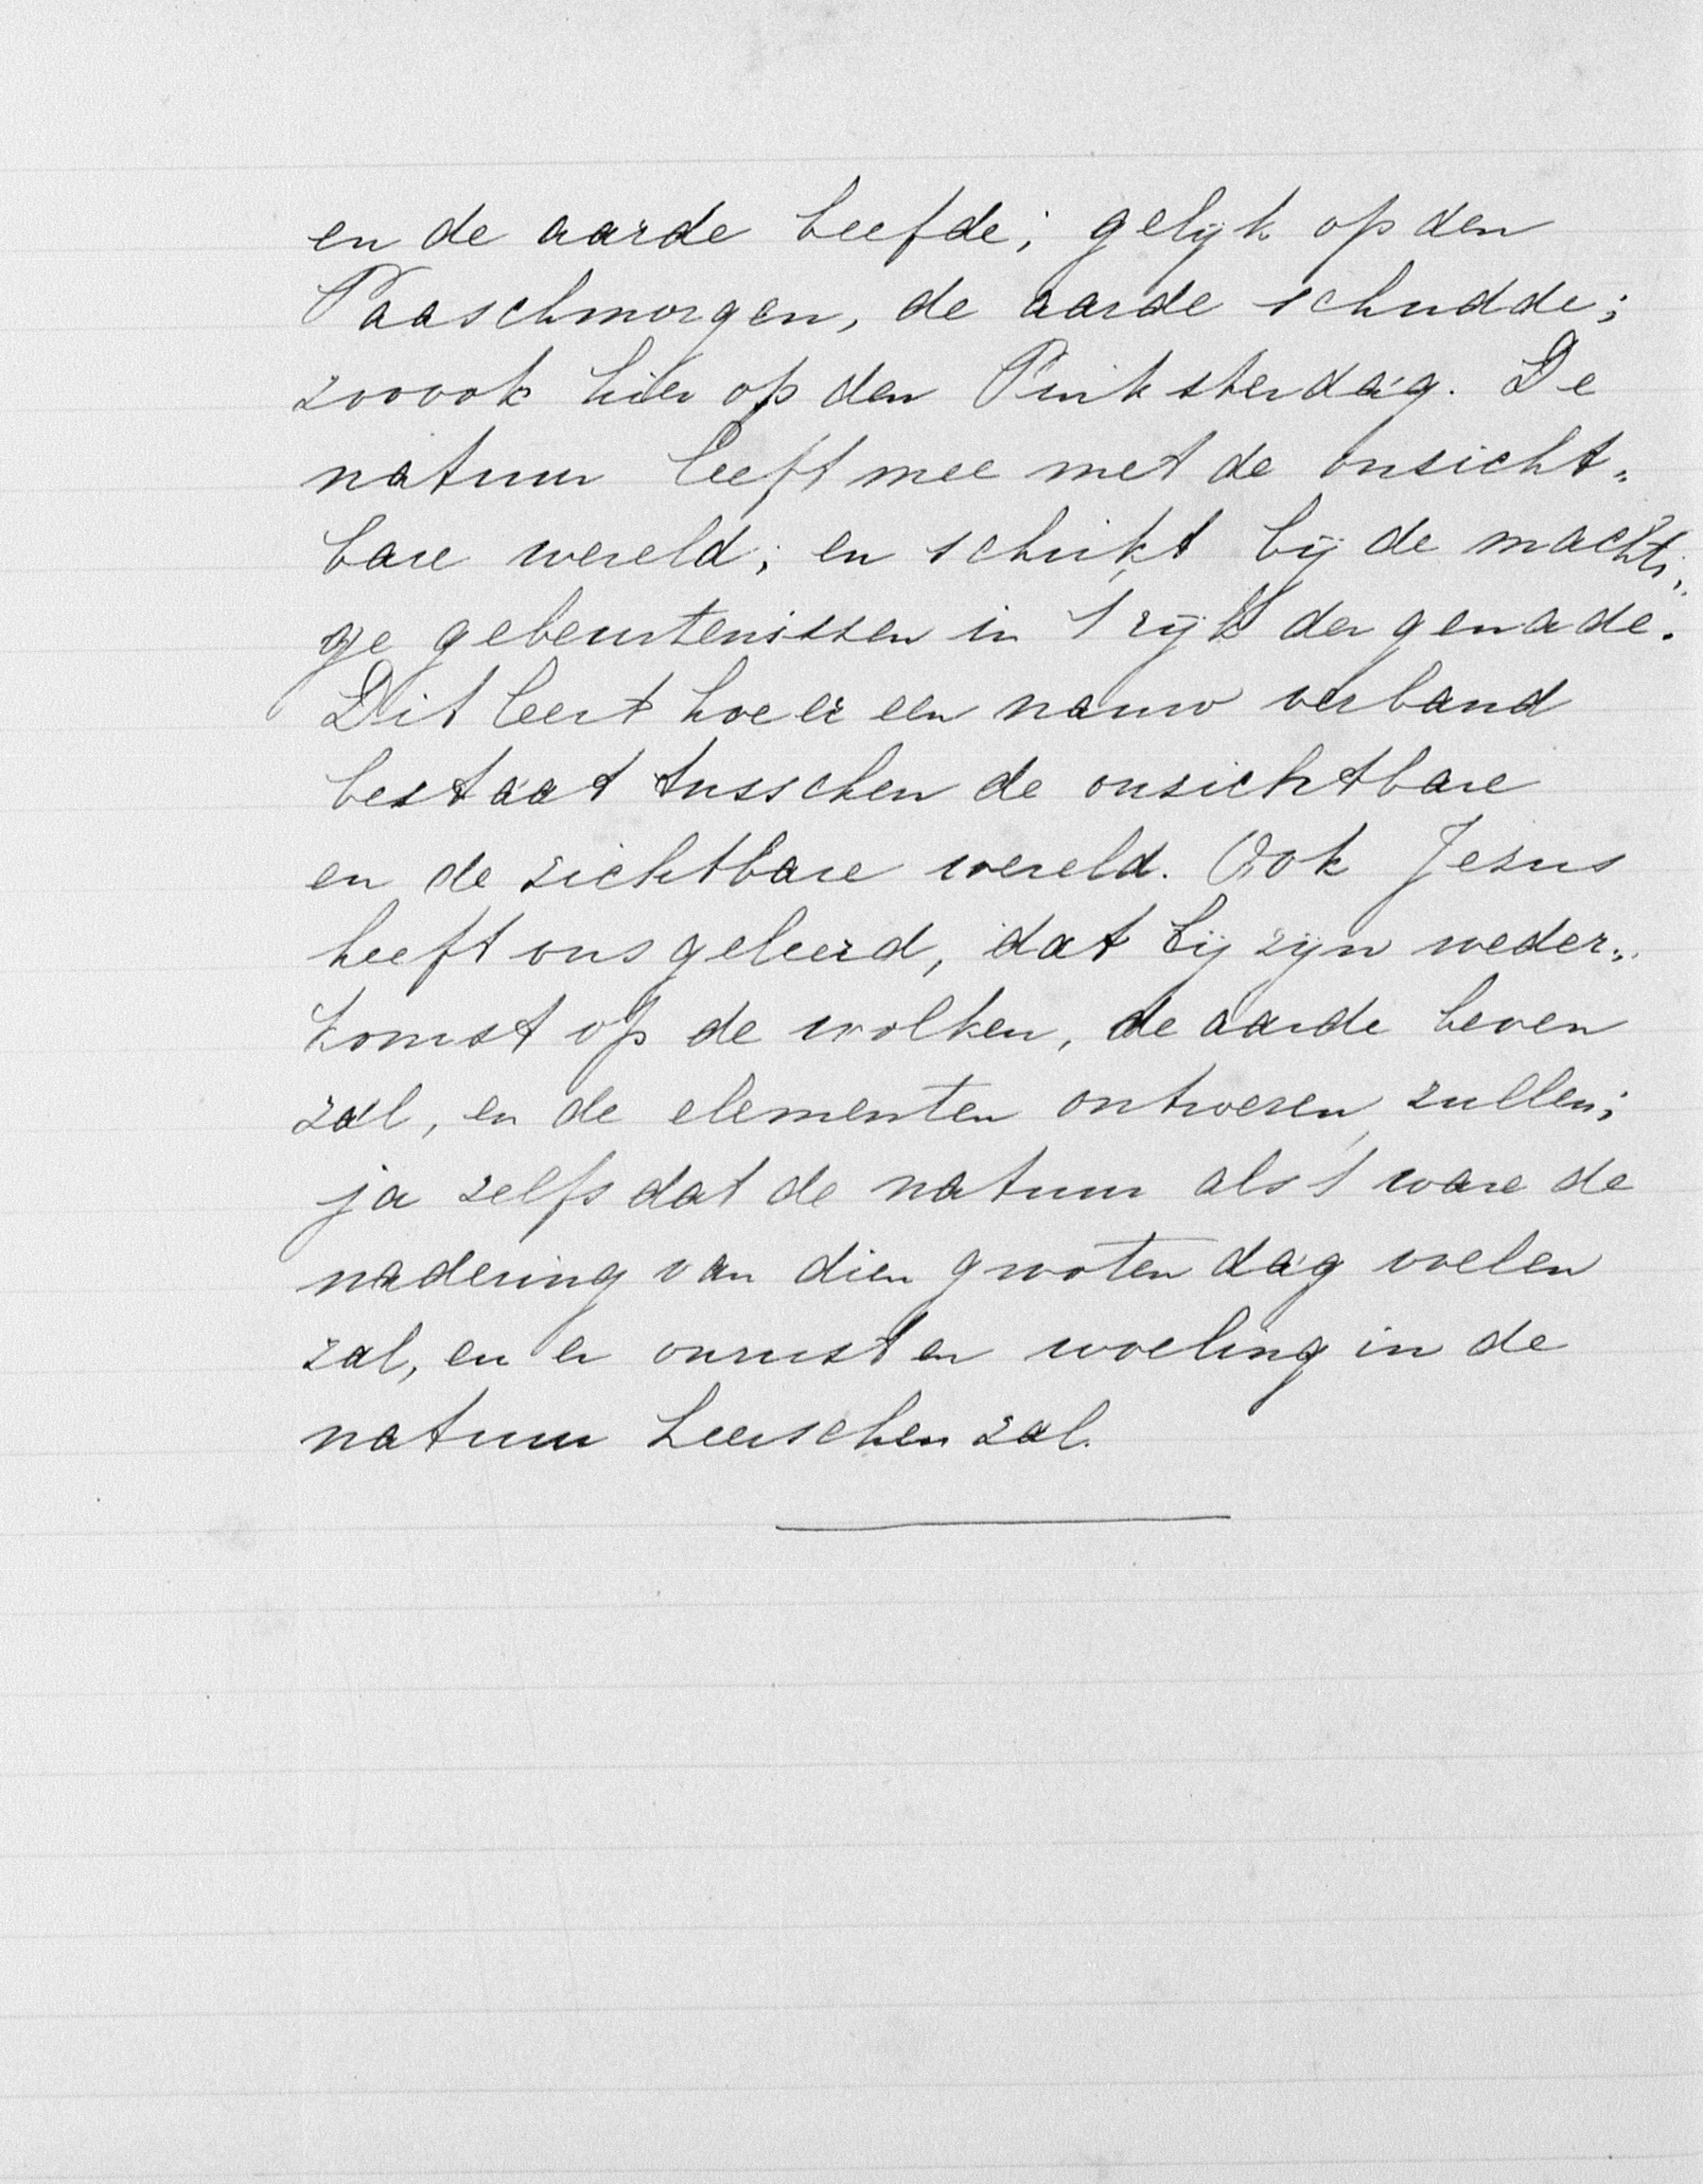 en de aarde beefde; gelijk op den
Paaschmorgen, de aarde schudde;
zooook hier op den Pinksterdag. De
natuur leeft mee met de onsicht„
bare wereld; en schrikt bij de machti„
ge gebeurtenissen in 't rijk der genade.
Dit leert hoe er een nauw verband
bestaat tusschen de onsichtbare
en de zichtbare wereld. Ook Jezus
heeft ons geleerd, dat bij zijn weder„
komst op de wolken, de aarde beven
zal, en de elementen ontroeren zullen;
ja zelfs dat de natuur als 't ware de
nadering van dien grooten dag voelen
zal, en er onrust en woeling in de
natuur heerschen zal.